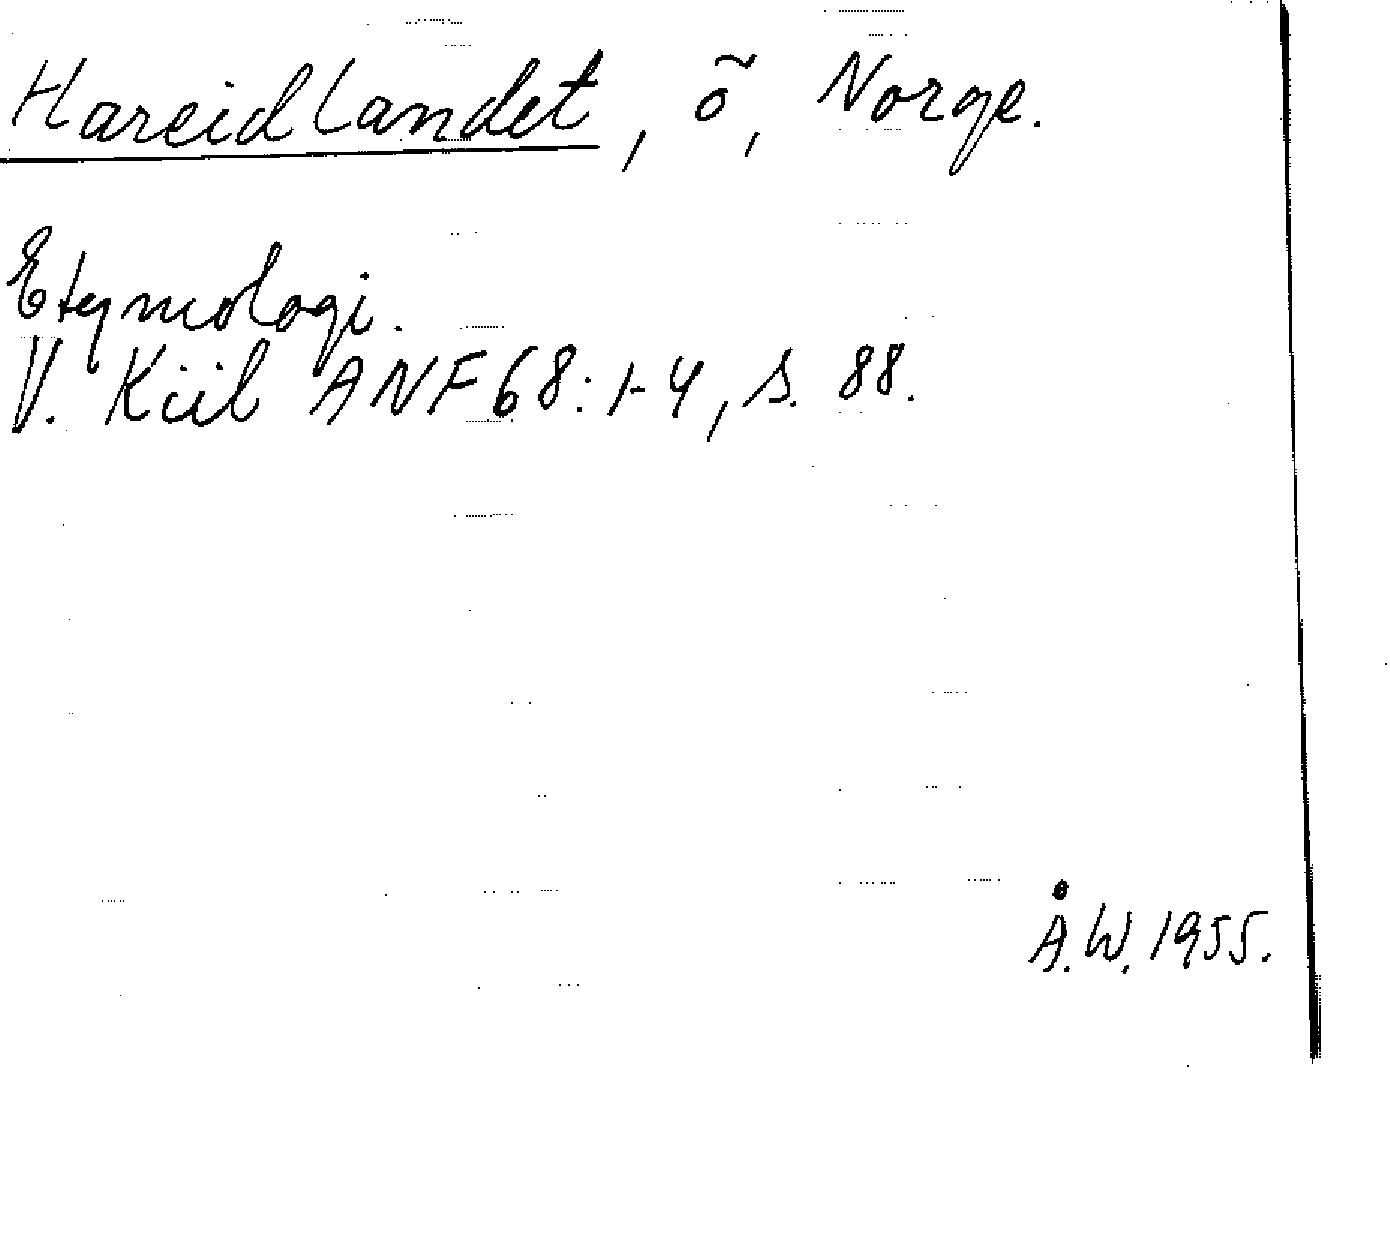 Hareidlandet, ö, Norge.
Etymologi.
V. Kiil ANF 68:1-4, s. 88.
Å.W. 1955.